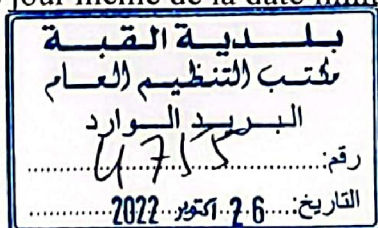 jour même de la date
بلدية القبة
مكتب التنظيم العام
البريد الوارد
رقم:
التاريخ: 26 أكتوبر 2022